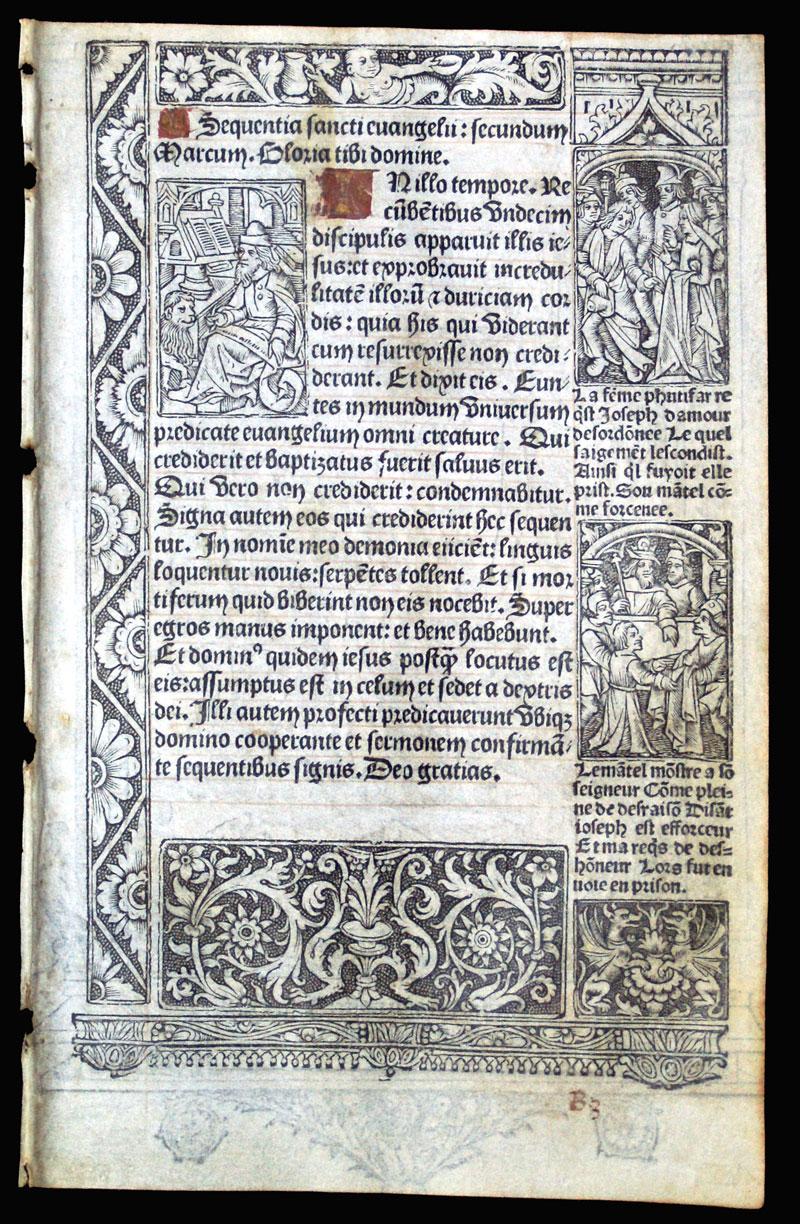 Sequentia sancti euangelii: secundum
Marcum. Gloria tibi domine.
IN illo tempore. Re
cūbētibus vndecim
discipulis apparuit illis ie⸗
sus:et exprobrauit incredu⸗
litatē illorū ⁊ duriciam cor
dis: quia his qui viderant
eum resurrexisse non credi⸗
derant. Et dixit eis. Eun⸗
tes in mundum vniuersum
predicate euangelium omni creature. Qui
crediderit et baptizatus fuerit saluus erit.
Qui vero non crediderit: condemnabitur.
Signa autem eos qui crediderint hec sequen
tur. In nomīe meo demonia eiiciēt: linguis
loquentur nouis:serpētes tollent. Et si mor
tiferum quid biberint non eis nocebit. Super
egros manus imponent: et bene habebunt.
Et dominꝰ quidem iesus postq̄ locutus est
eis:assumptus est in celum et sedet a dextris
dei. Illi autem profecti predicauerunt vbiqꝫ
domino cooperante et sermonem confirmā⸗
te sequentibus signis. Deo gratias.
La fēme phutifar re
q̄st Joseph damour
desordōnee Le quel
saigemēt lescondist.
Ainsi q̄l fuyoit elle
prist. Son mātel cō⸗
me forcenee.
Le mātel mōstre a sō
seigneur Cōme plei⸗
ne de desraisō Disāt
ioseph est efforceur
Et ma req̄s de des⸗
hōneur Lors fut en
uoie en prison.
B3